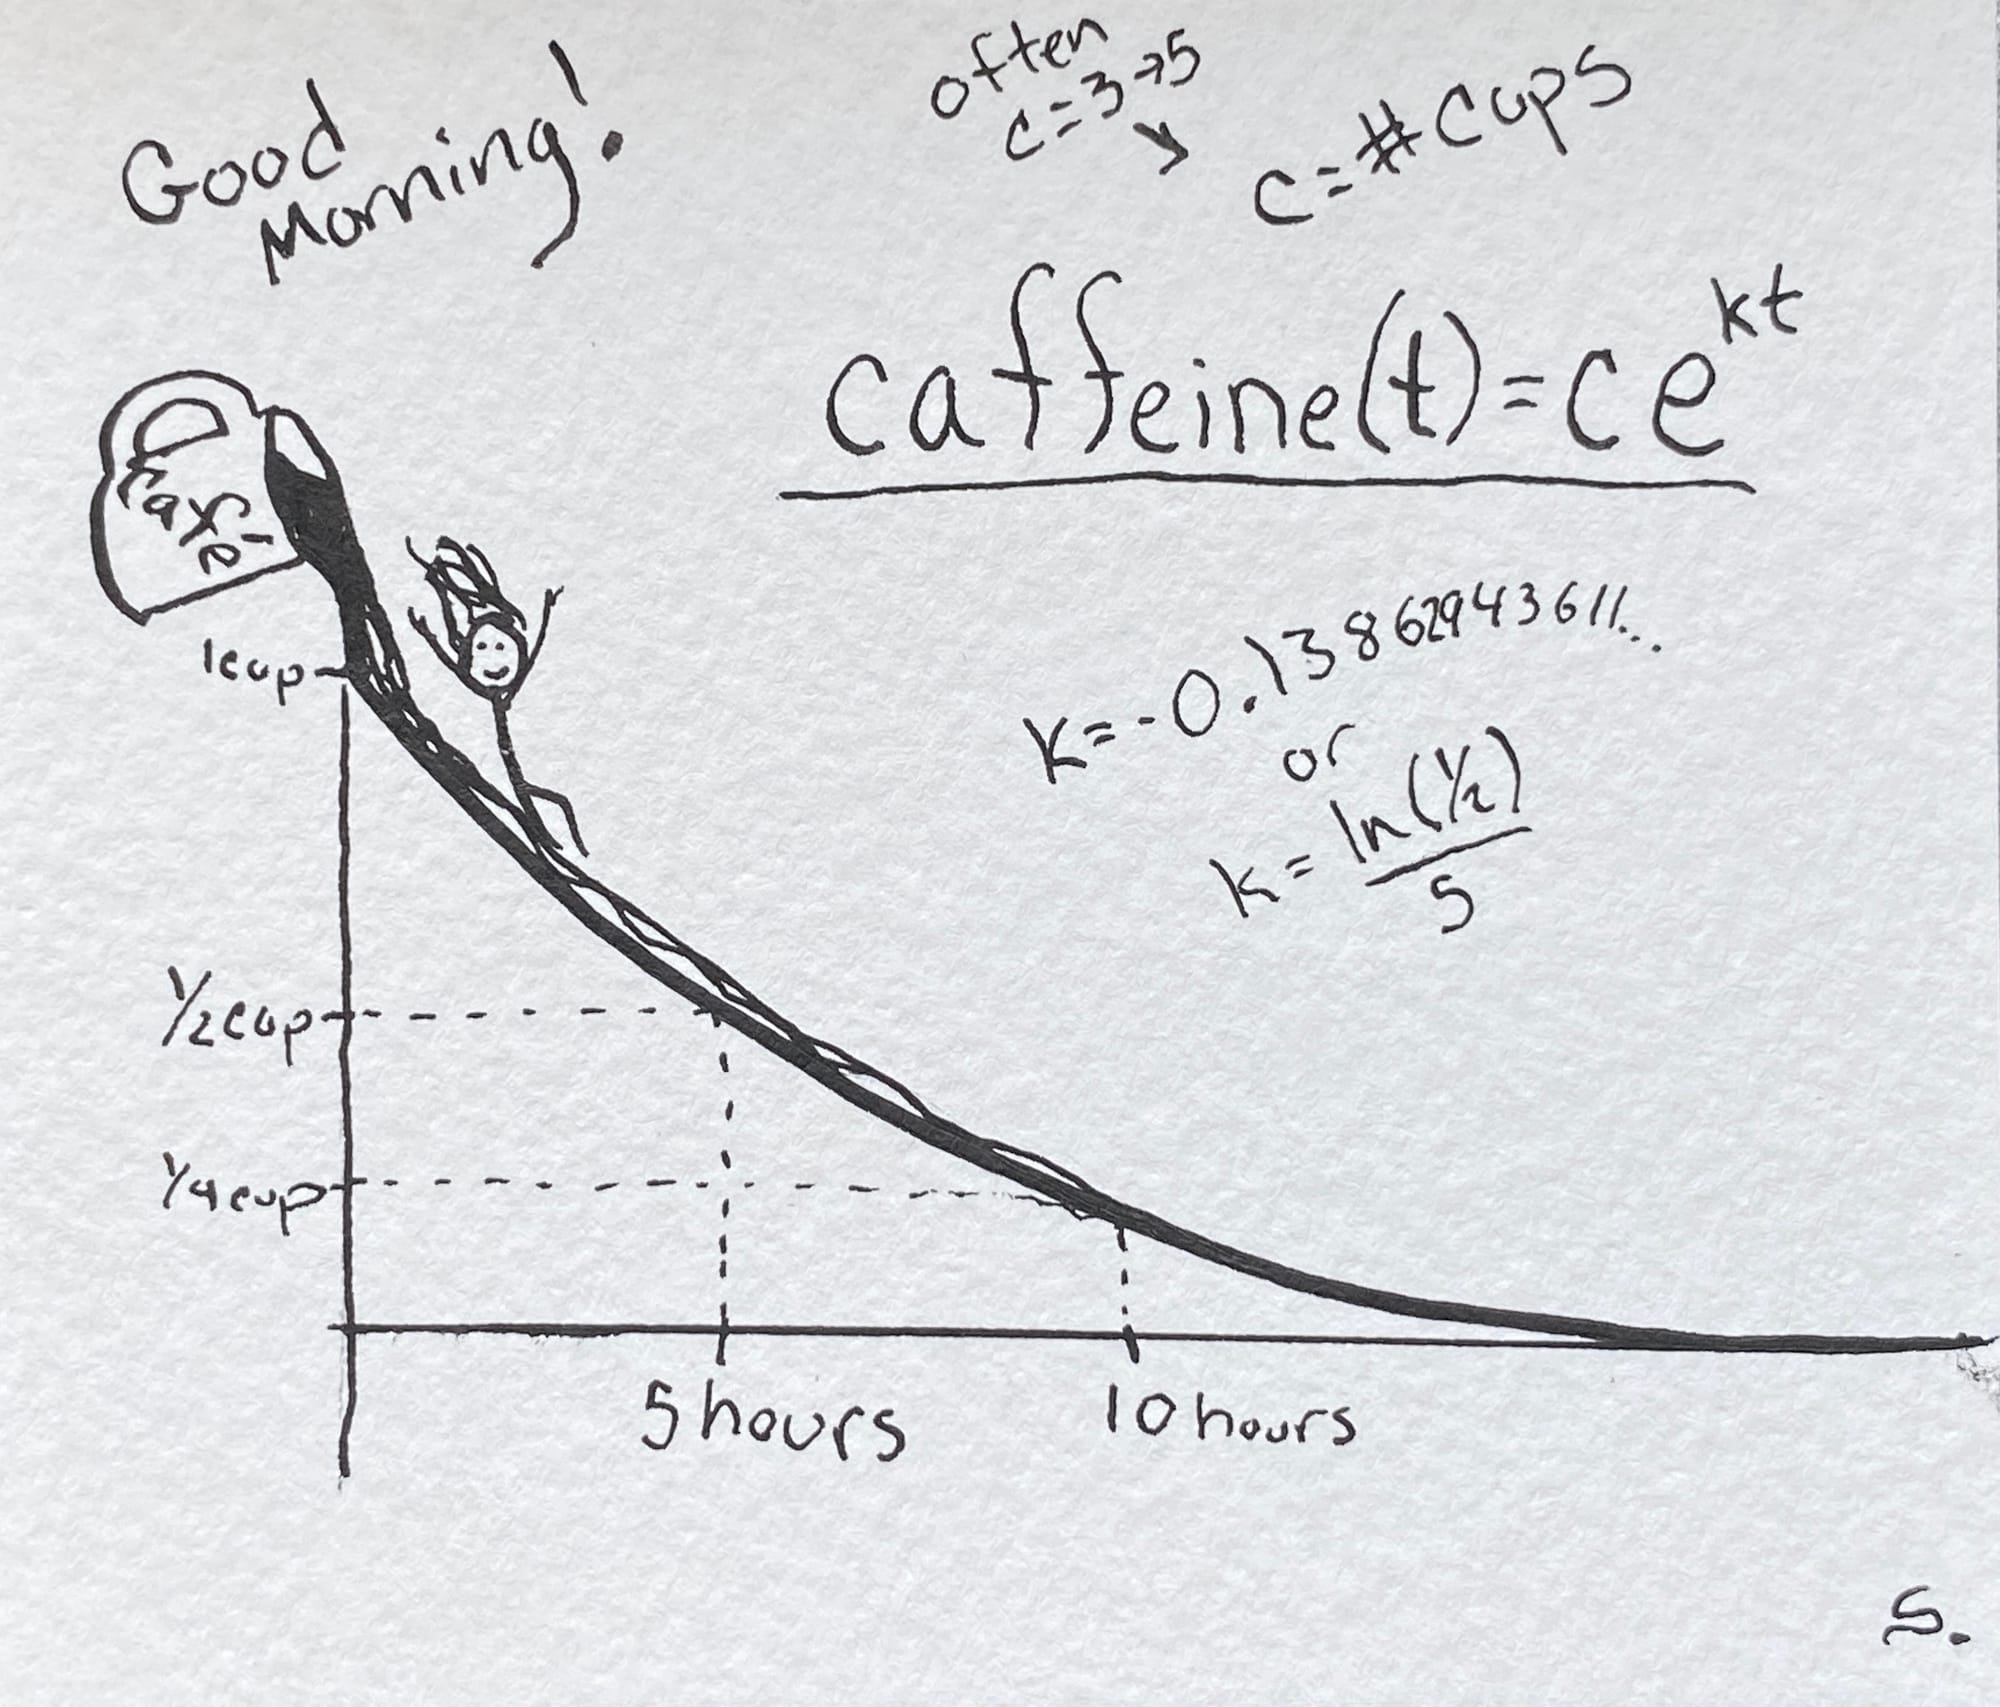 Good
Morning!
often
c=3→5
c=#cups
caffeine(t)=ce^kt
1cup
k=-0.13862943611...
or
k=ln(1/2)/5
1/2cup
1/4cup
5hours
10hours
S.